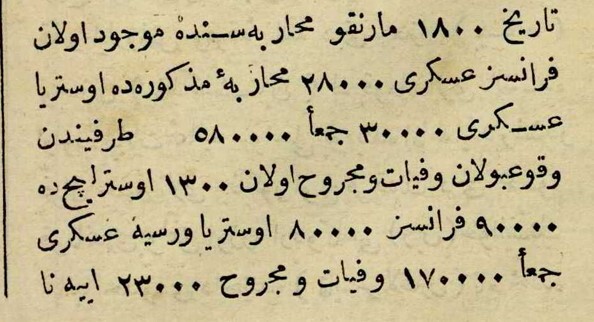 تاریخ ۱۸۰۰ مارنقو محاربه‌سـنده موجود اولان
فرانسز عسكری ۲۸۰۰۰ محاربهٔ مذكوره‌ده اوستریا
عسـكری ۳۰۰۰۰ جمعاً ۵۸۰۰۰۰ طرفیندن
وقوعبولان وفیات و مجروح اولان ۱۳۰۰ اوسترلیچ ده
۹۰۰۰۰ فرانسز ۸۰۰۰۰ اوستریا ورسیهٔ عسكری
جمعاً ۱۷۰۰۰۰ وفیات و مجروح ۲۳۰۰۰ اییه نا